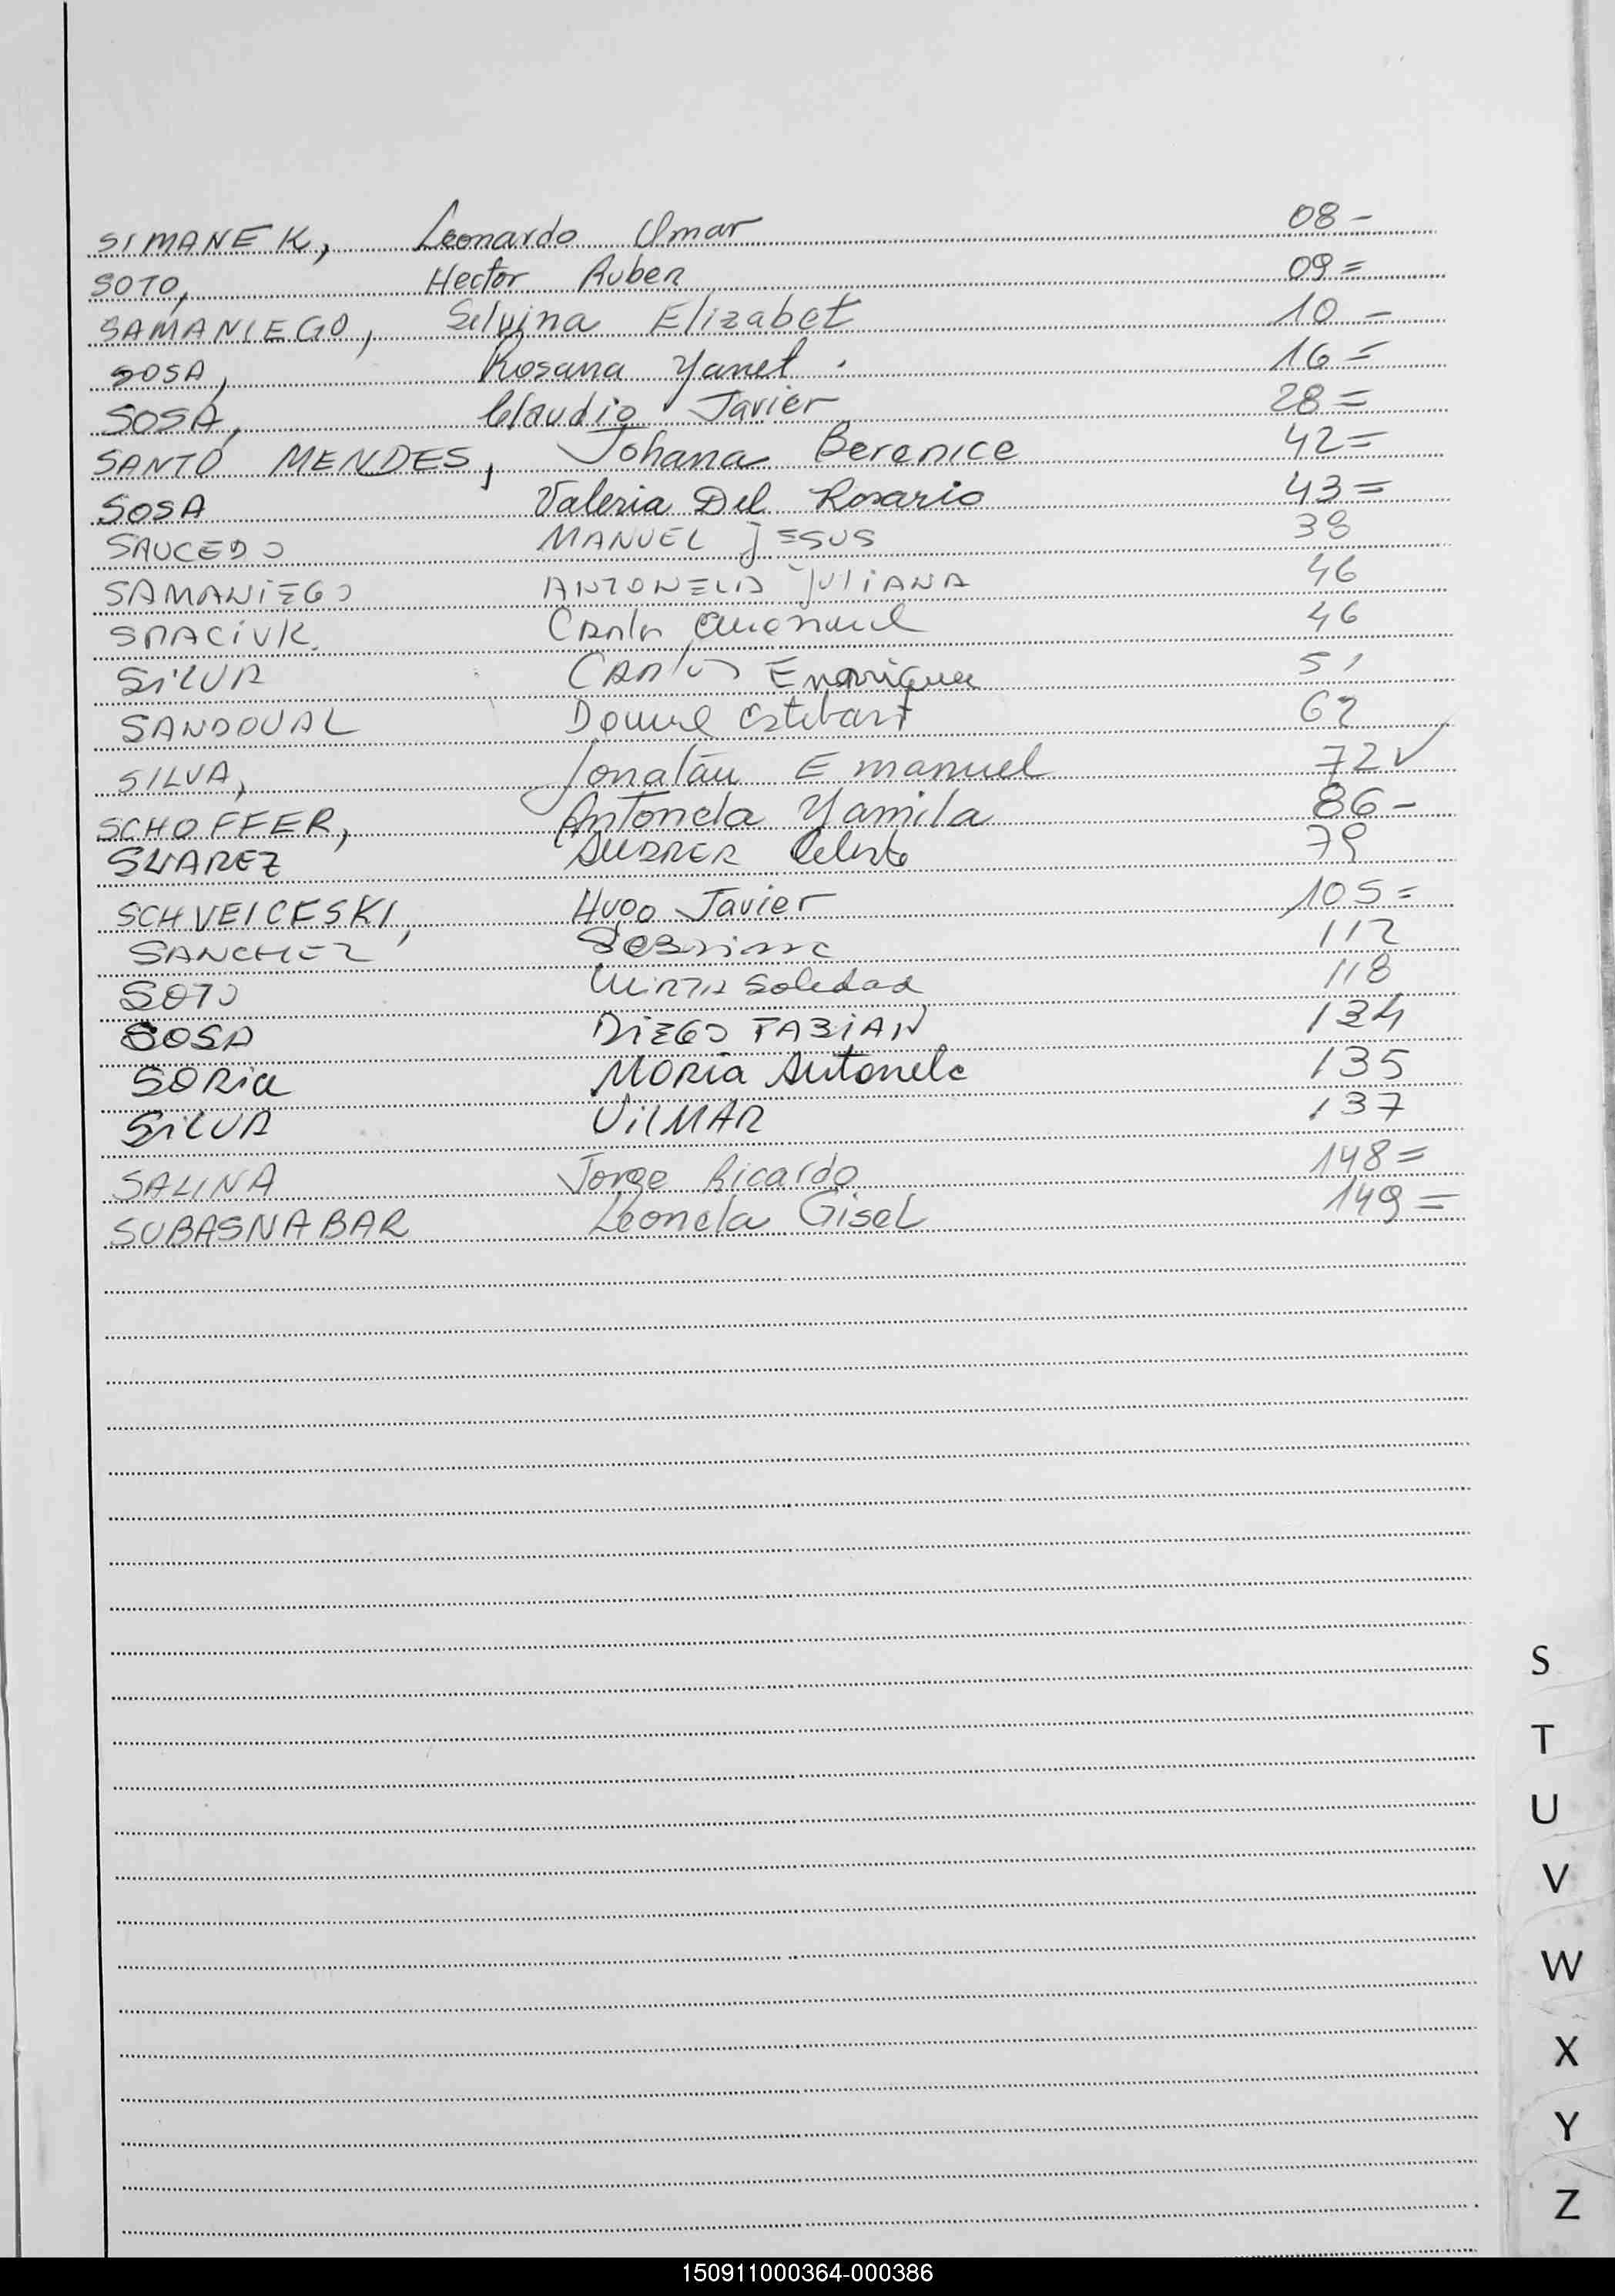 SIMANEK, Leonardo Omar 08-
SOTO, Hector Ruben 09=
SAMANIEGO, Silvina Elizabet 10-
SOSA, Rosana Yanet. 16=
SOSA, Claudio Javier 28=
SANTO MENDES, Johana Berenice 42=
SOSA Valeria Del Rosario 43=
SAUCEDO MANUEL JESUS 38
SAMANIEGO ANTONELA JULIANA 46
SPACIUK. Carlos 46
SILVA CARLOS Enrrique 51
SANDOVAL Esteban 62
SILVA, Jonatán Emanuel 72✓
SCHOFFER, Antonela Yamila 86-
SUAREZ Celeste 79
SCHVEICESKI, Hugo Javier 105=
SANCHEZ 112
SOTO MIRTA Soledad 118
SOSA DIEGO FABIAN 134
SORIA MARIA Antonela 135
SILVA VILMAR 137
SALINA Jorge Ricardo 148=
SUBASNABAR Leonela Gisel 149=
S
T
U
V
W
X
Y
Z
150911000364-000386